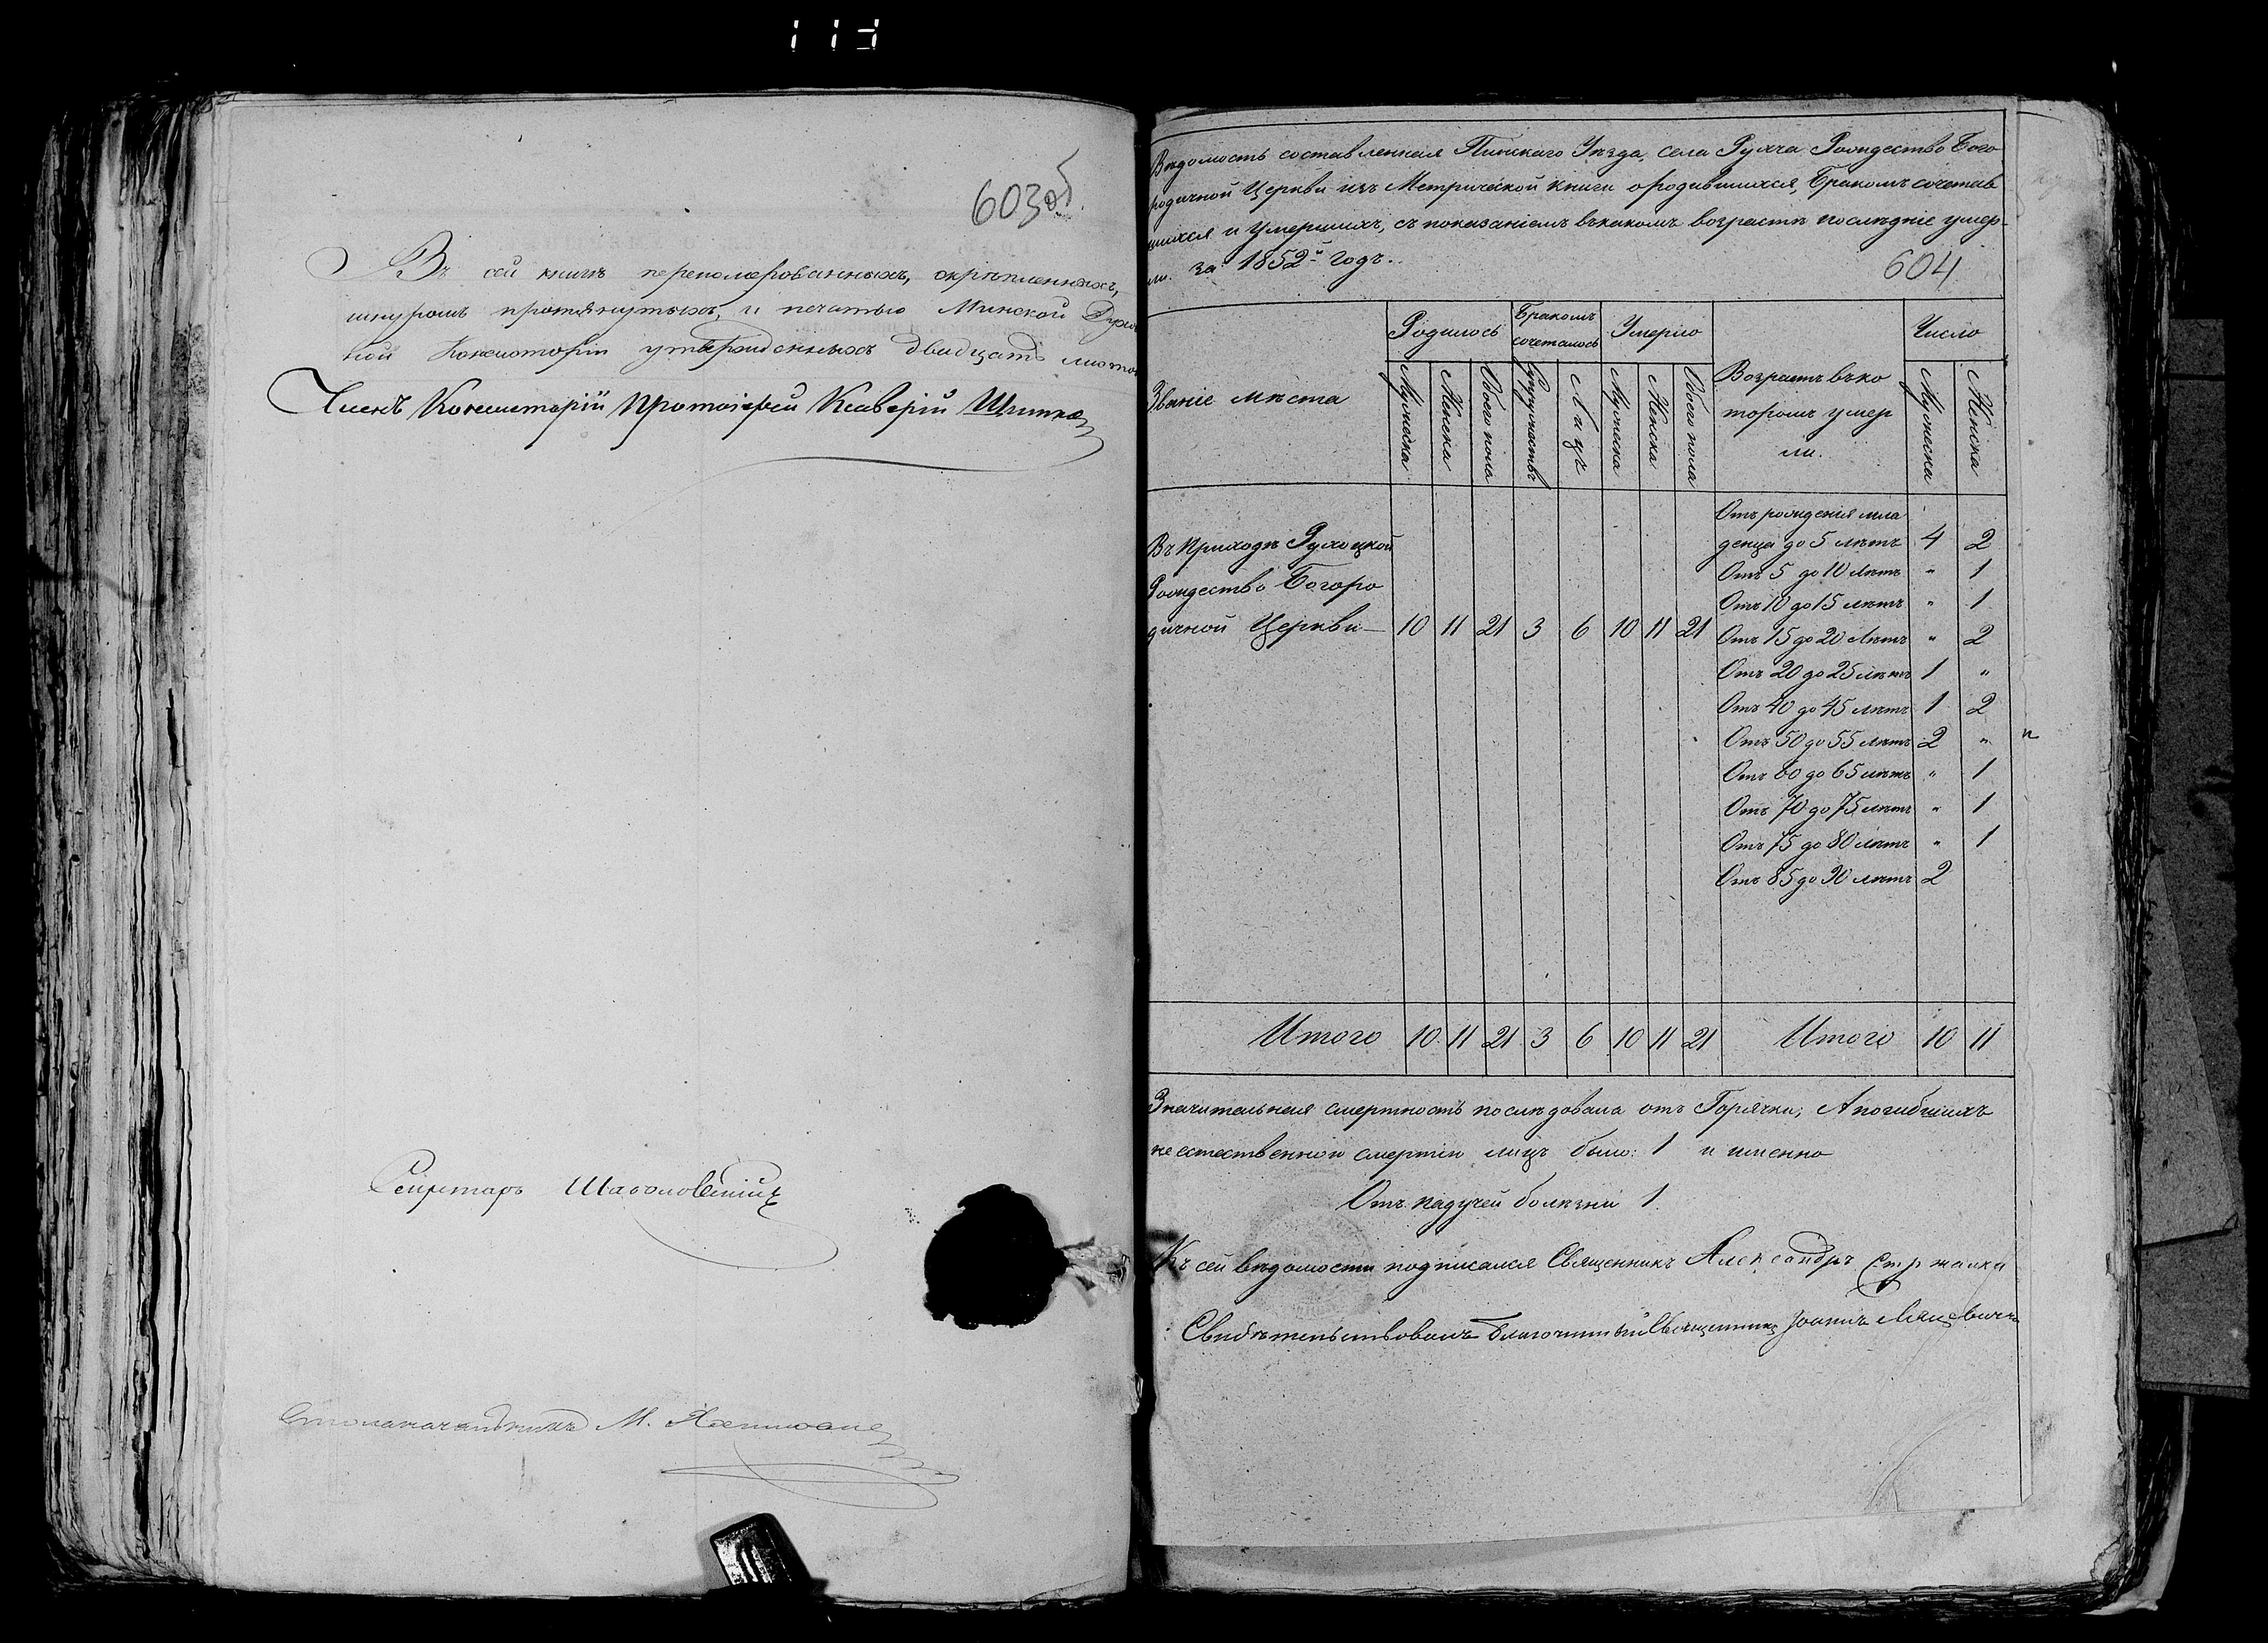 603 об.
Въ сей книгѣ переномерованныхъ, скрѣпленныхъ,
шнуромъ протянутыхъ, и печатью Минской Духов
ной Консисторіи утвержденныхъ двадцать листо
Членъ Консисторіи Протоіерей
Секретарь
Столоначальникъ М.
Вѣдомость составленная Пинскаго Уѣзда, села Рухча Рождество Бого
родичной Церкви изъ Метрической книги о родившихся, Бракомъ сочетав
шихся и Умершихъ, съ показаніемъ въ какомъ возрастѣ послѣдніе умер-
ли. за 1852й годъ.
604
Званіе мѣста
Родилось
Бракомъ сочеталось
Умерло
Возрастъ въ ко
торомъ умер
ли.
Число
Мужеска Женска Обоего пола Супружествъ Лицъ Мужеска Женска Обоего пола Мужеска Женска
Въ Приходѣ Рухоцкой
Рождество Богоро
дичной Церкви — 10 11 21 3 6 10 11 21
Отъ рожденія мла
денца до 5 лѣтъ 4 2
Отъ 5 до 10 лѣтъ " 1
Отъ 10 до 15 лѣтъ " 1
Отъ 15 до 20 лѣтъ " 2
Отъ 20 до 25 лѣтъ 1 "
Отъ 40 до 45 лѣтъ 1 2
Отъ 50 до 55 лѣтъ 2 "
Отъ 60 до 65 лѣтъ " 1
Отъ 70 до 75 лѣтъ " 1
Отъ 75 до 80 лѣтъ " 1
Отъ 85 до 90 лѣтъ 2
Итого 10 11 21 3 6 10 11 21 Итого 10 11
Значительная смертность послѣдовала отъ Горячки; А погибшихъ
не естественной смертію лицъ было: 1 и именно
Отъ падучей болѣзни 1.
Къ сей вѣдомости подписался Священникъ Александръ
Свидѣтельствовалъ Благочинный Священникъ Іоаннъ